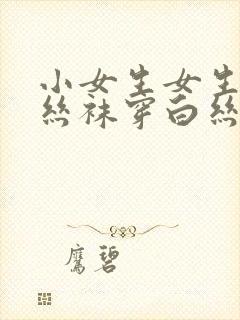 小女生女生
丝袜穿白丝
鹰碧